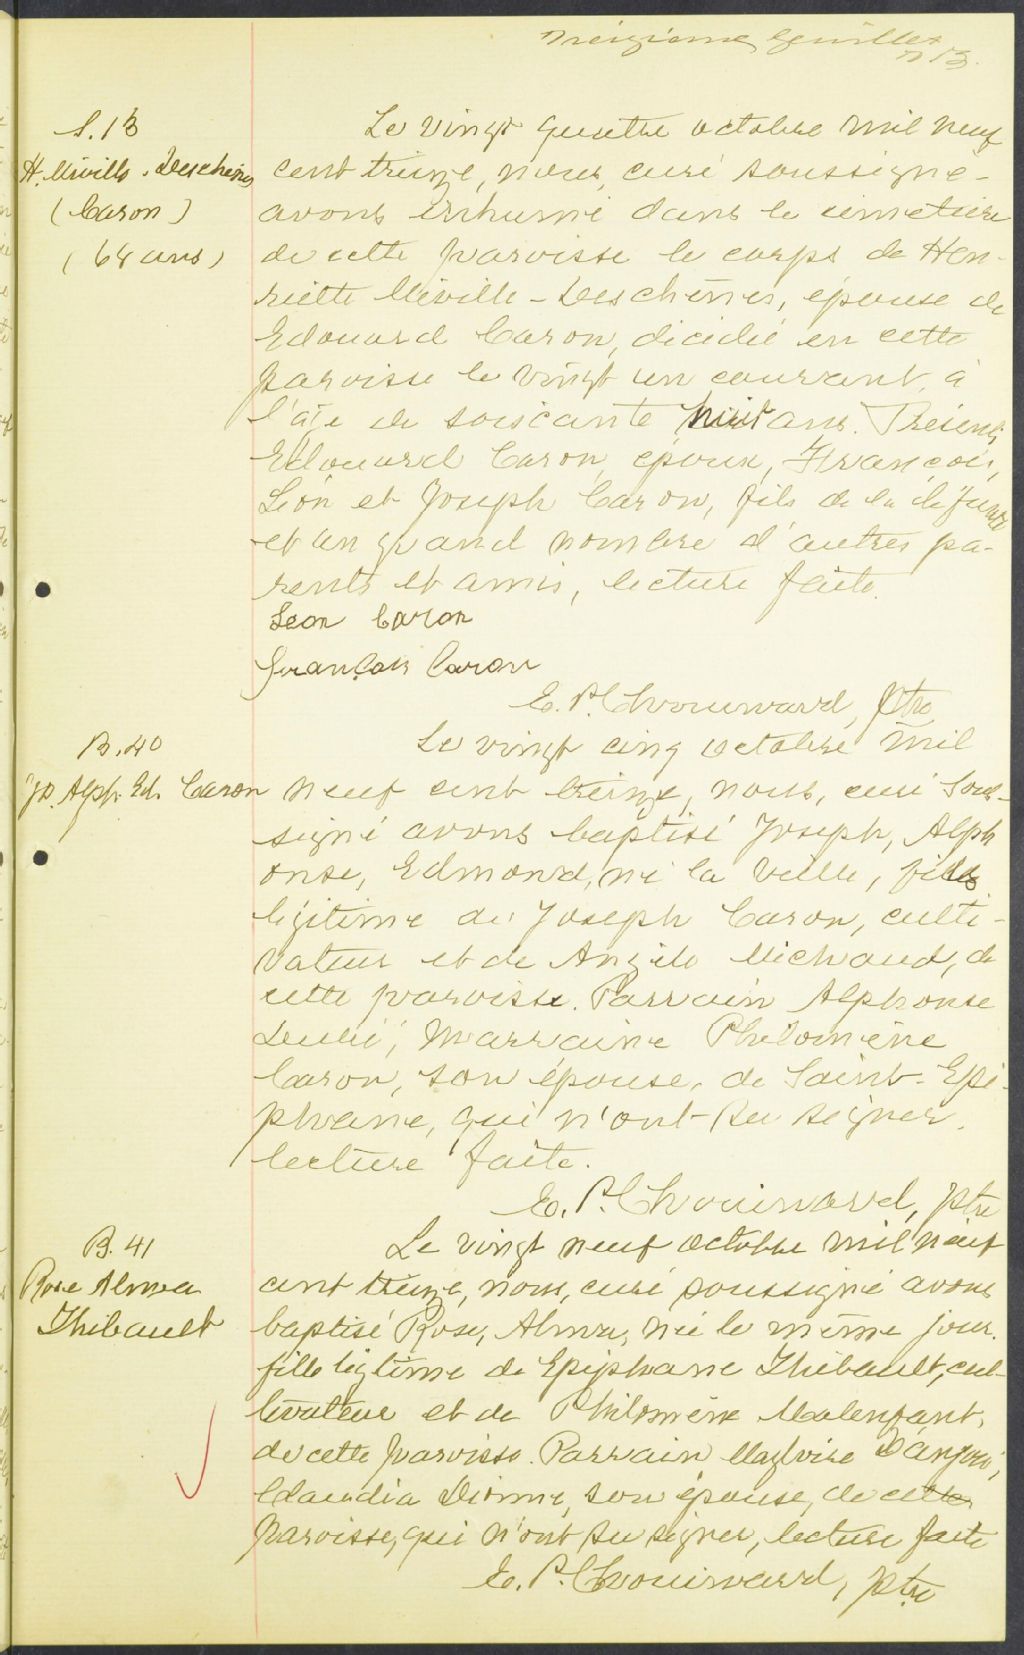 treizième feuillet
n 13.
S. 13
H. Miville-Deschênes
(Caron)
(68 ans)
Le vingt quatre octobre mil neuf
cent treize, nous, curé soussigné
avons inhumé dans le cimetière
de cette paroisse le corps de Hen-
riette Miville-Deschênes, épouse de
Edouard Caron, décédée en cette
paroisse le vingt un courant, à
l'âge de soixante huit ans. Présents
Edouard Caron, époux, François,
Léon et Joseph Caron, fils de la défunte
et un grand nombre d'autres pa-
rents et amis, lecture faite.
Leon Caron
François Caron
E. P. Chouinard, ptre
B. 40
Js. Alph. Ed. Caron
Le vingt cinq octobre mil
neuf cent treize, nous, curé sous-
signé avons baptisé Joseph, Alph
onse, Edmond, né la veille, fils
légitime de Joseph Caron, culti-
vateur et de Angèle Michaud, de
cette paroisse. Parrain Alphonse
Dubé, marraine Philomène
Caron, son épouse, de Saint-Epi-
phane, qui n'ont su signer.
lecture faite.
E. P. Chouinard, ptre
B. 41
Rose Alma
Thibault
Le vingt neuf octobre mil neuf
cent treize, nous, curé soussigné avons
baptisé Rose, Alma, née le même jour.
fille légitime de Epiphane Thibault, cul-
tivateur et de Philomène Malenfant,
de cette paroisse. Parrain Magloire D'anjou,
Claudia Dionne, son épouse, de cette
paroisse, qui n'ont su signer, lecture faite
E. P. Chouinard, ptre